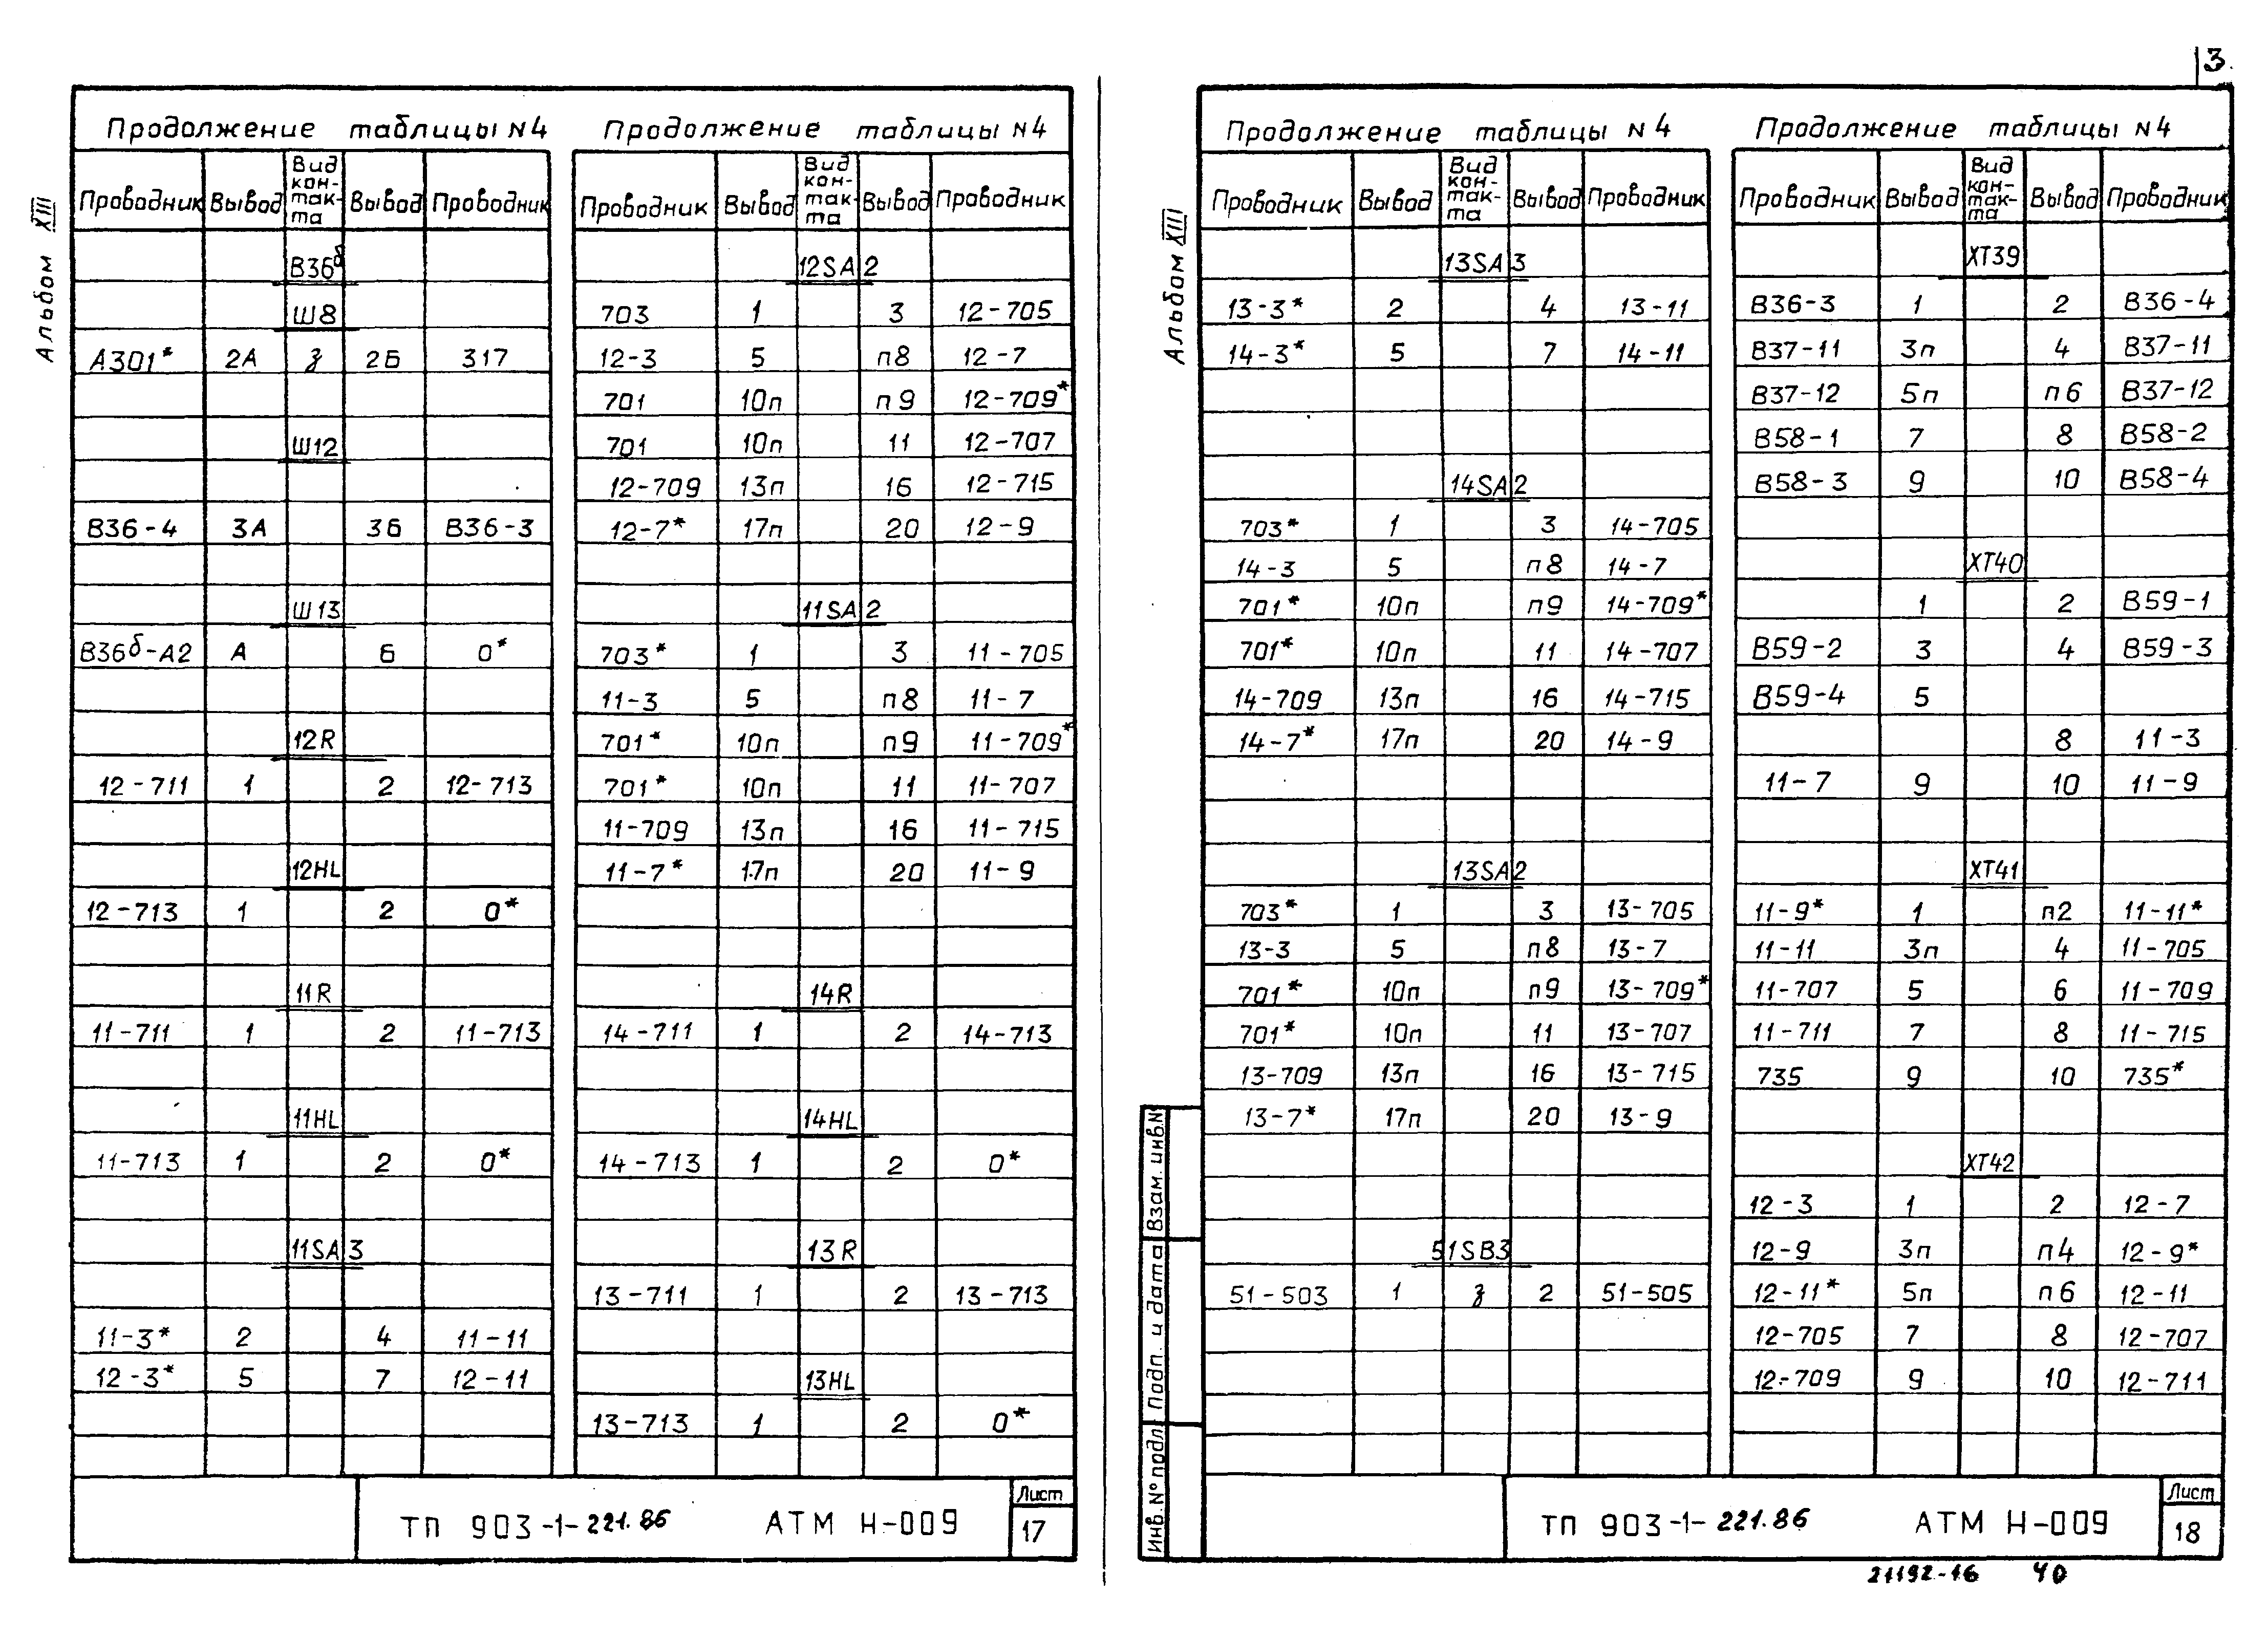 3
Альбом XIII
Продолжение таблицы N4
Проводник Вывод Вид кон-так-та Вывод Проводник
В36б
Ш8
А301* 2А з 2Б 317
Ш12
В36-4 3А 3Б В36-3
Ш13
В36б-А2 А Б 0*
12R
12-711 1 2 12-713
12HL
12-713 1 2 0*
11R
11-711 1 2 11-713
11HL
11-713 1 2 0*
11SA3
11-3* 2 4 11-11
12-3* 5 7 12-11
Продолжение таблицы N4
Проводник Вывод Вид кон-так-та Вывод Проводник
12SA2
703 1 3 12-705
12-3 5 п8 12-7
701 10п п9 12-709*
701 10п 11 12-707
12-709 13п 16 12-715
12-7* 17п 20 12-9
11SA2
703* 1 3 11-705
11-3 5 п8 11-7
701* 10п п9 11-709*
701* 10п 11 11-707
11-709 13п 16 11-715
11-7* 17п 20 11-9
14R
14-711 1 2 14-713
14HL
14-713 1 2 0*
13R
13-711 1 2 13-713
13HL
13-713 1 2 0*
ТП 903-1-221.86 АТМ Н-009
Лист
17
Альбом XIII
Продолжение таблицы N4
Проводник Вывод Вид кон-так-та Вывод Проводник
13SA3
13-3* 2 4 13-11
14-3* 5 7 14-11
14SA2
703* 1 3 14-705
14-3 5 п8 14-7
701* 10п п9 14-709*
701* 10п 11 14-707
14-709 13п 16 14-715
14-7* 17п 20 14-9
13SA2
703* 1 3 13-705
13-3 5 п8 13-7
701* 10п п9 13-709*
701* 10п 11 13-707
13-709 13п 16 13-715
13-7* 17п 20 13-9
51SB3
51-503 1 з 2 51-505
Продолжение таблицы N4
Проводник Вывод Вид кон-так-та Вывод Проводник
XT39
В36-3 1 2 В36-4
В37-11 3п 4 В37-11
В37-12 5п п6 В37-12
В58-1 7 8 В58-2
В58-3 9 10 В58-4
XT40
1 2 В59-1
В59-2 3 4 В59-3
В59-4 5
8 11-3
11-7 9 10 11-9
XT41
11-9* 1 п2 11-11*
11-11 3п 4 11-705
11-707 5 6 11-709
11-711 7 8 11-715
735 9 10 735*
XT42
12-3 1 2 12-7
12-9 3п п4 12-9*
12-11* 5п п6 12-11
12-705 7 8 12-707
12-709 9 10 12-711
Инв. N° подл. Подп. и дата Взам. инв. N
ТП 903-1-221.86 АТМ Н-009
Лист
18
21192-16 40